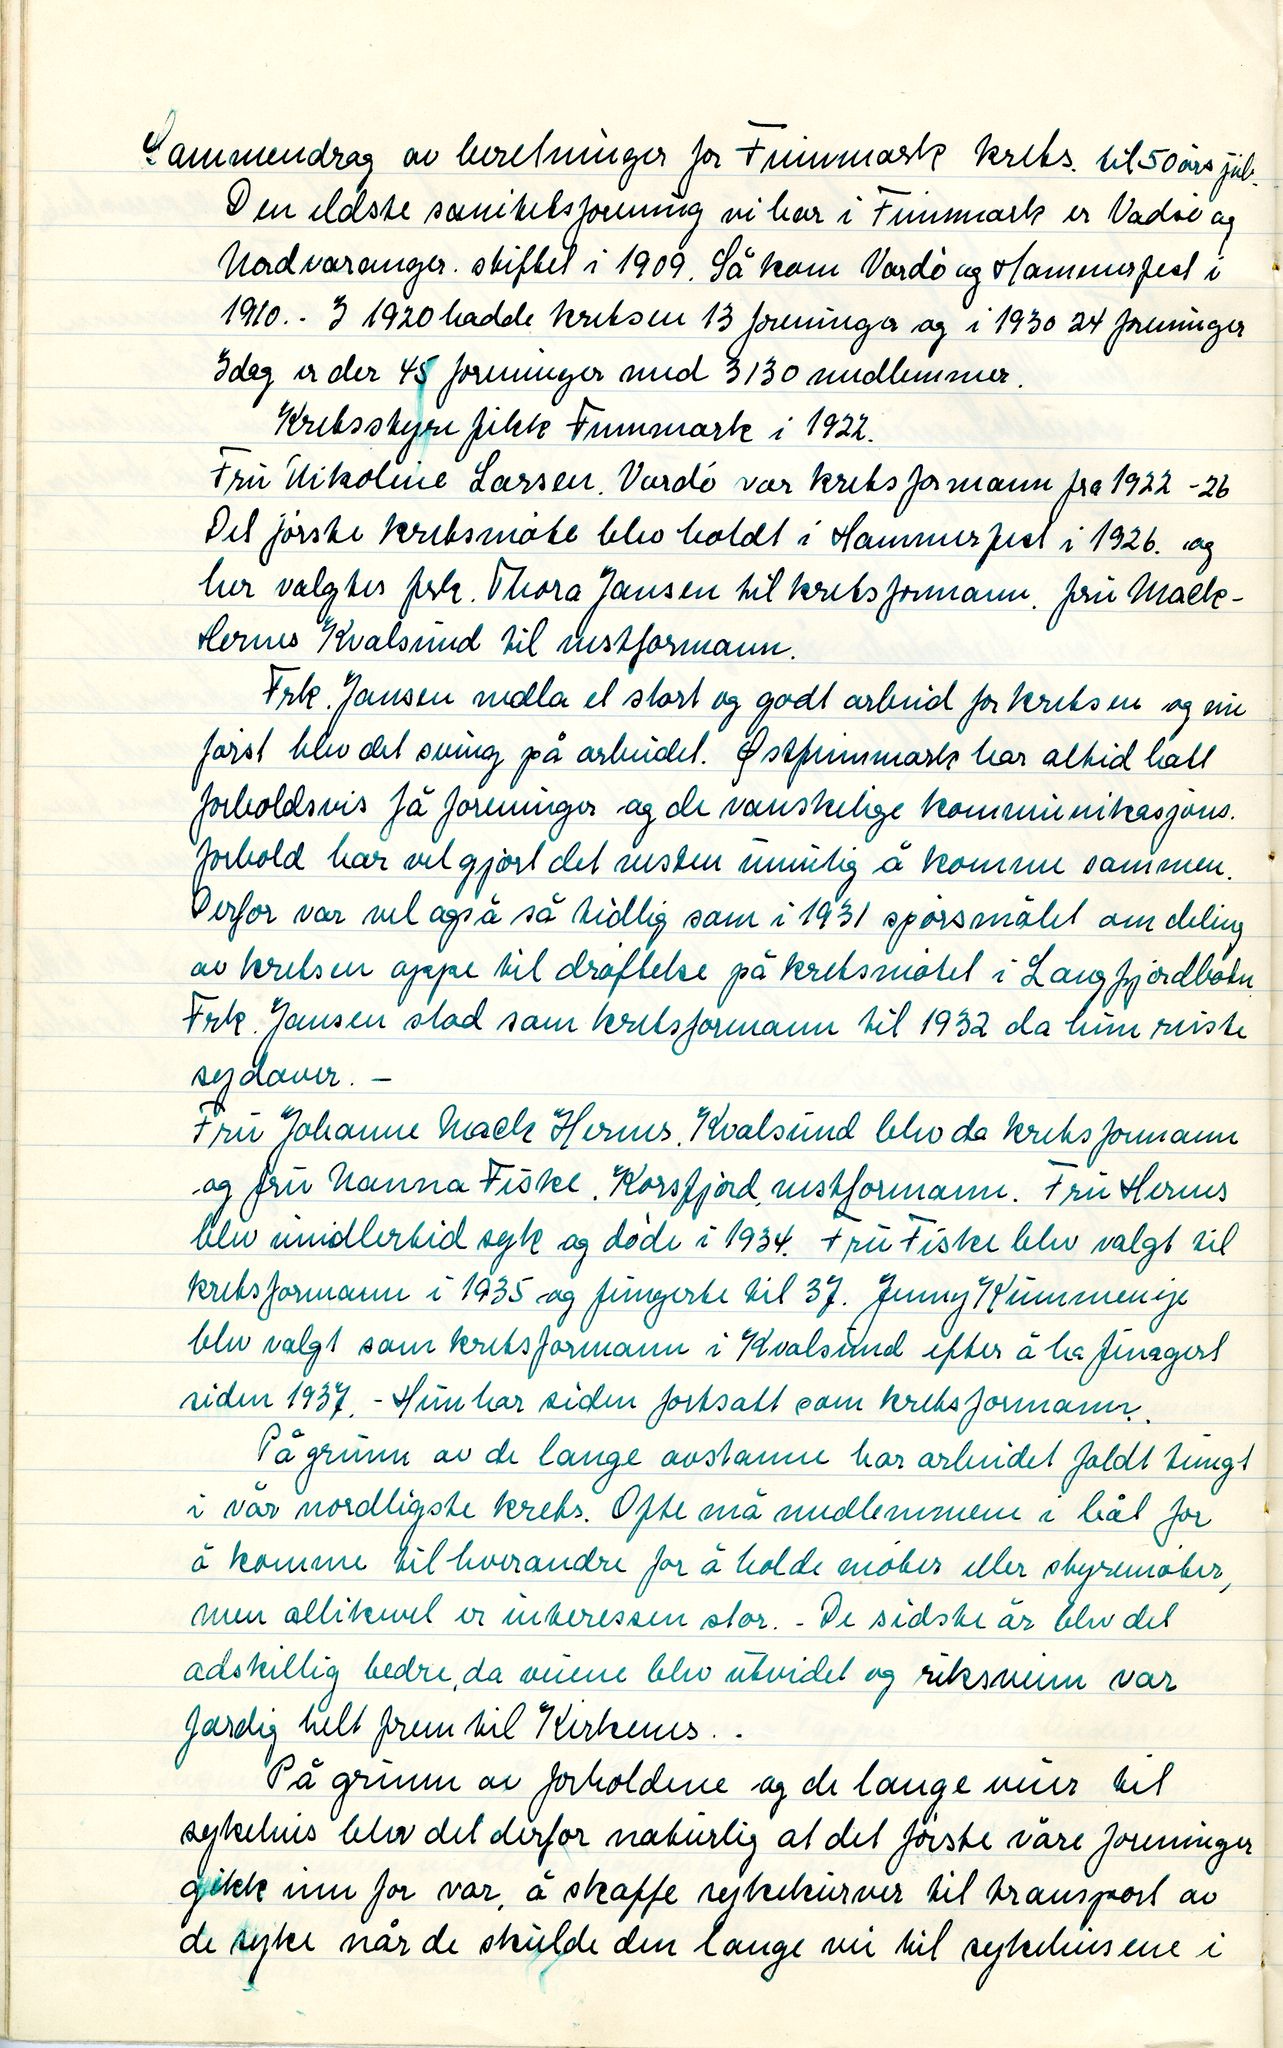 Sammendrag av beretninger for Finnmark krets. til 50 års jub.
Den eldste sanitetsforening vi har i Finnmark er Vadsø og
Nordvaranger. stiftet i 1909. Så kom Vardö og Hammerfest i
1910. - I 1920 hadde kretsen 13 foreninger og i 1930 24 foreninger
Idag er der 45 foreninger med 3130 medlemmer.
Kretsstyre fikk Finnmark i 1922.
Frü Nikoline Larsen. Vardö var kretsformann fra 1922 - 26
Det förste kretsmöte blev holdt i Hammerfest i 1926. og
her valgtes frk. Thora Jansen til kretsformann. frü Mack-
Hernes Kvalsünd til nestformann.
Frk. Jansen nedla et stort og godt arbeid for kretsen og nü
först blev det sving på arbeidet. Østfinnmark har altid hatt
forholdsvis få foreninger og de vanskelige kommünikasjons.
forhold har vel gjort det nesten ümülig å komme sammen.
Derfor var vel også så tidlig som i 1931 spörsmålet om deling
av kretsen oppe til dröftelse på kretsmötet i Langfjordbotn.
Frk. Jansen stod som kretsformann til 1932 da hün reiste
sydover. -
Frü Johanne Mack Hernes, Kvalsünd blev da kretsformann
og frü Nanna Fiske, Korsfjord, nestformann. Frü Hernes
blev imidlertid syk og döde i 1934. Frü Fiske blev valgt til
kretsformann i 1935 og füngerte til 37. Jenny Kümmeneje
blev valgt som kretsformann i Kvalsünd efter å ha füngert
siden 1937. - Hün har siden fortsatt som kretsformann.
På grünn av de lange avstanne har arbeidet faldt tüngt
i vår nordligste krets. Ofte må medlemmene i båt for
å komme til hverandre for å holde möter eller styremöter,
men allikevel er interessen stor. - De sidste år blev det
adskillig bedre, da veiene blev ütvidet og riksveien var
færdig helt frem til Kirkenes. .
På grünn av forholdene og de lange veier til
sykehüs blev det derfor natürlig at det förste våre foreninger
gikk inn for var, å skaffe sykekürver til transport av
de syke når de skülde den lange vei til sykehüsene i